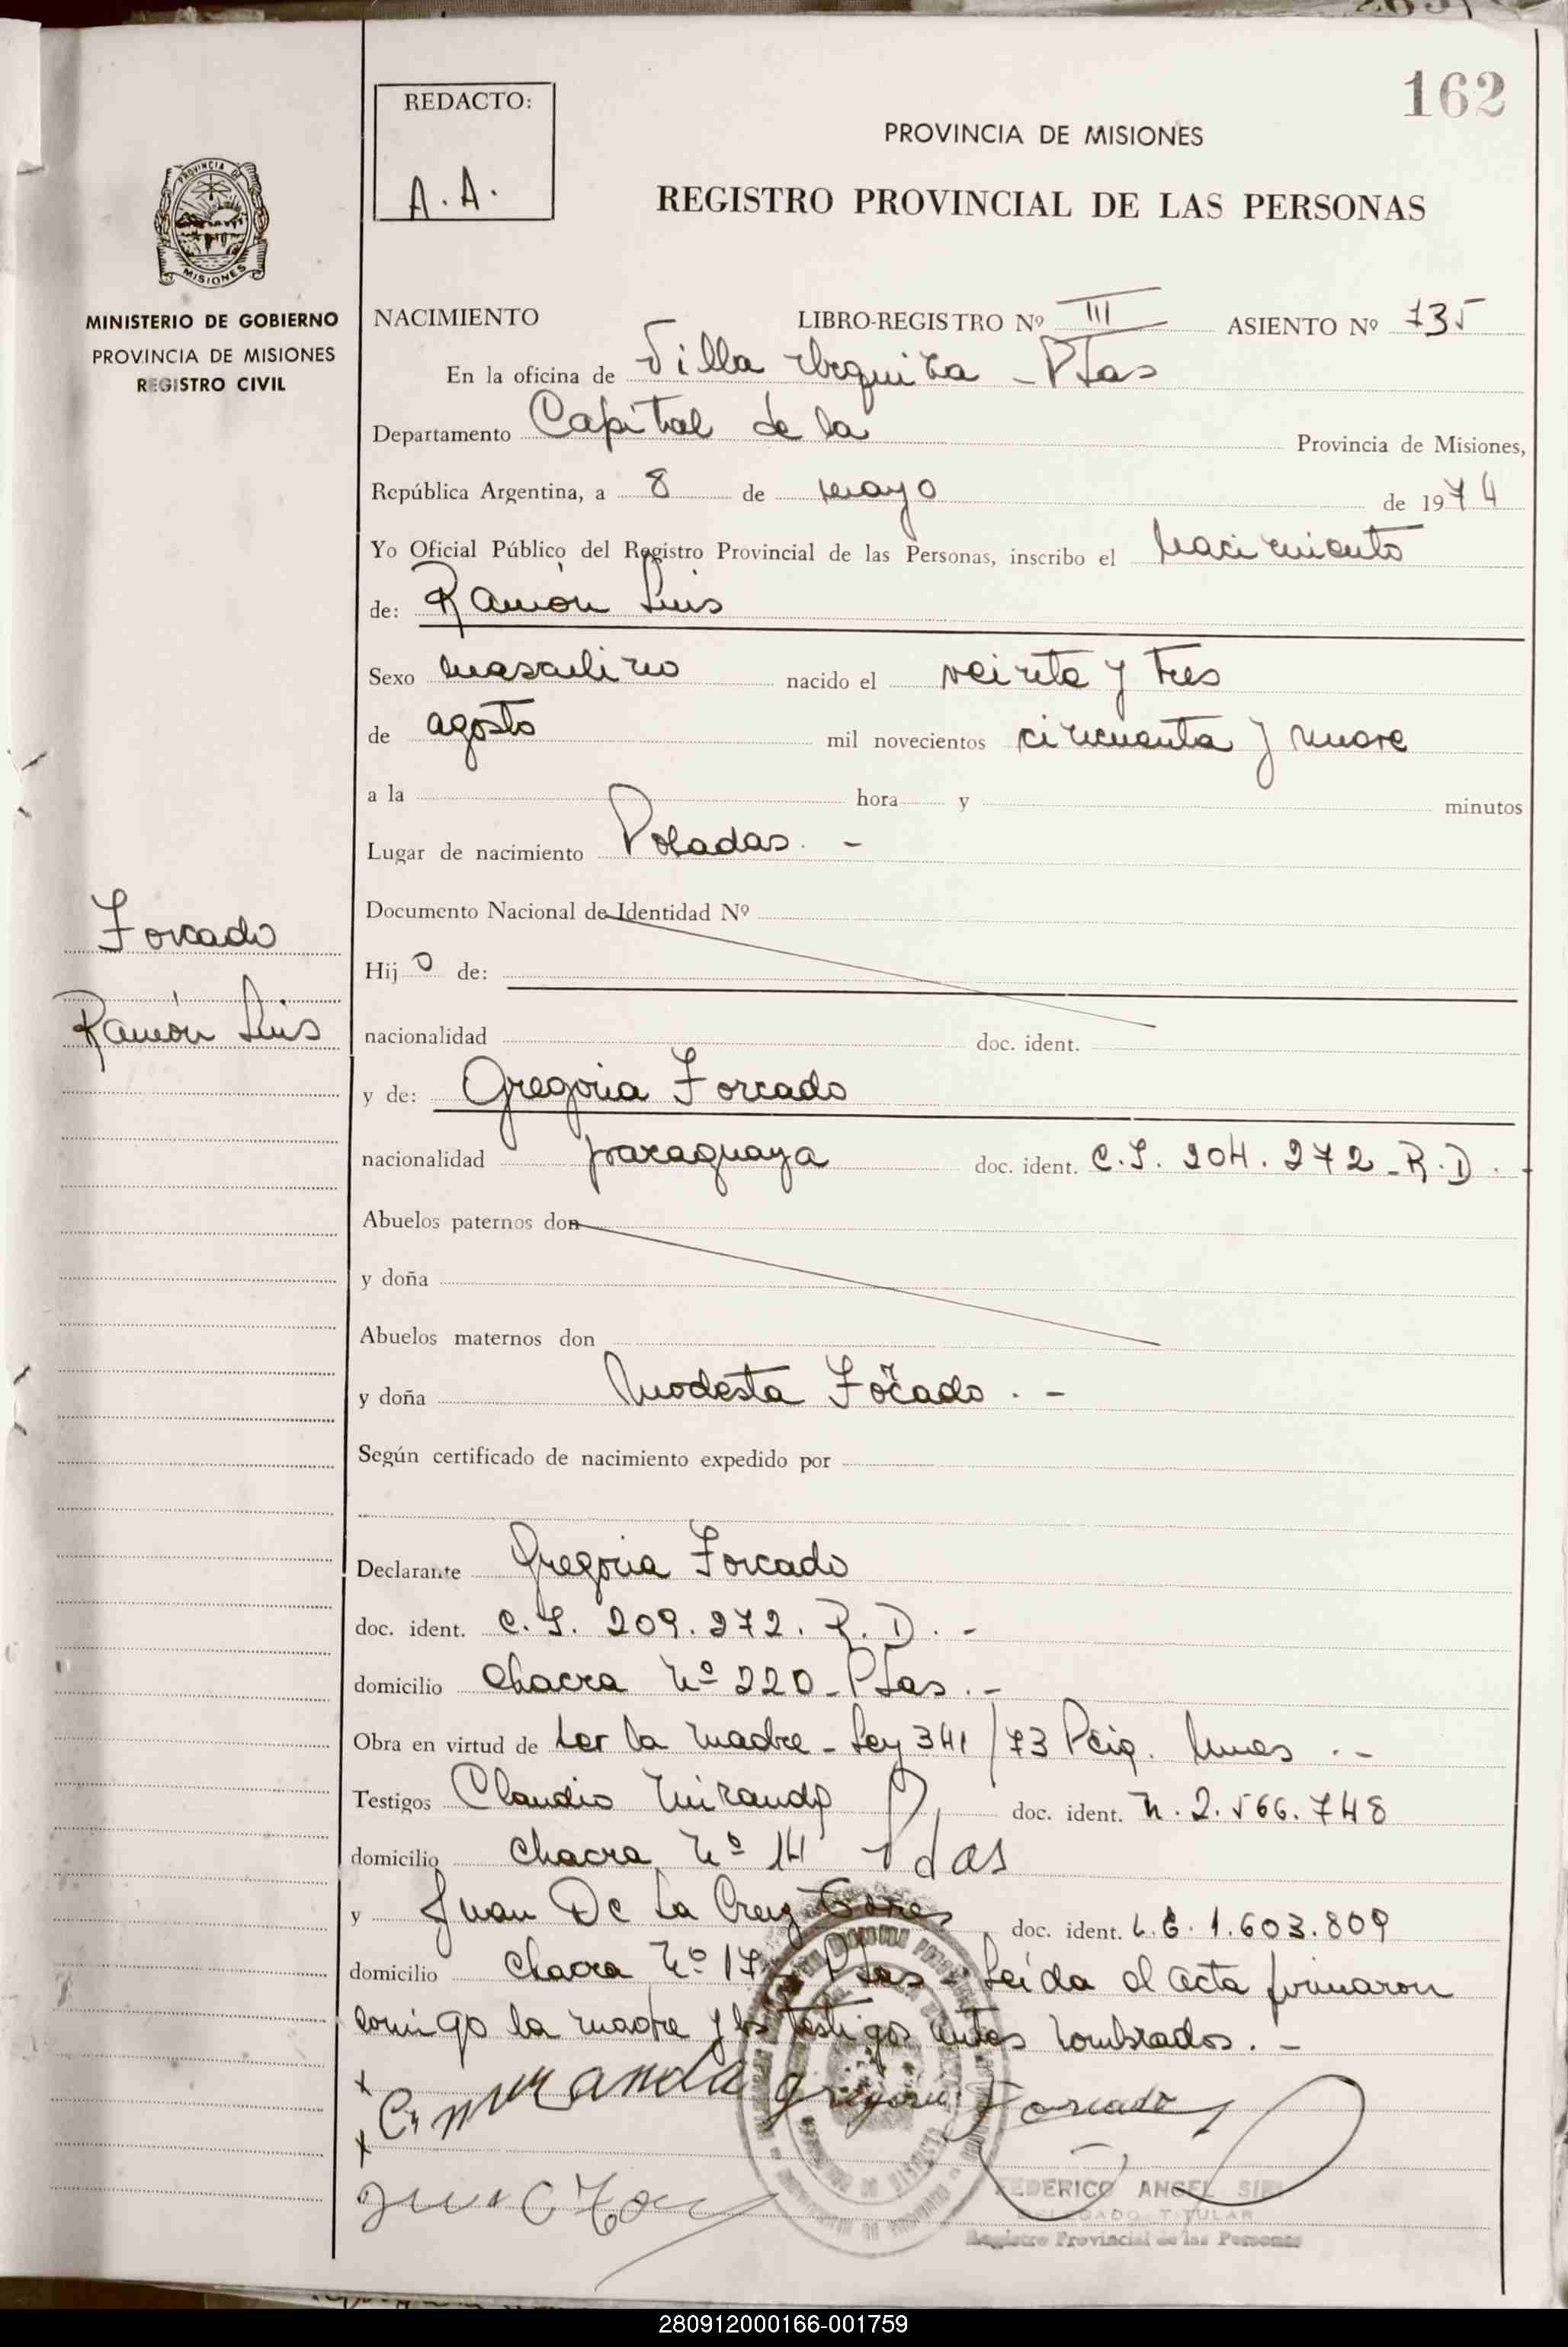 162
REDACTO:
A.A.
PROVINCIA DE MISIONES
REGISTRO PROVINCIAL DE LAS PERSONAS
PROVINCIA DE
MISIONES
MINISTERIO DE GOBIERNO
PROVINCIA DE MISIONES
REGISTRO CIVIL
NACIMIENTO LIBRO-REGISTRO Nº III ASIENTO Nº 735
En la oficina de Villa Urquiza - Pdas
Departamento Capital de la Provincia de Misiones,
República Argentina, a 8 de mayo de 1974
Yo Oficial Público del Registro Provincial de las Personas, inscribo el nacimiento
de: Ramón Luis
Sexo masculino nacido el veinte y tres
de agosto mil novecientos cincuenta y nueve
a la hora y minutos
Lugar de nacimiento Posadas. -
Documento Nacional de Identidad Nº
Forcado
Hijo de:
Ramón Luis
nacionalidad doc. ident.
y de: Gregoria Forcado
nacionalidad paraguaya doc. ident. C.I. 204.272 - R.D.
Abuelos paternos don
y doña
Abuelos maternos don
y doña Modesta Forcado. -
Según certificado de nacimiento expedido por
Declarante Gregoria Forcado
doc. ident. C.I. 209.272. R.D. -
domicilio Chacra Nº 220 - Pdas. -
Obra en virtud de ser la madre - Ley 341/73 Pcia. Mnes. -
Testigos Claudio Miranda doc. ident. M. 2.566.748
domicilio Chacra Nº 14 Pdas
y Juan De La Cruz doc. ident. L.E. 1.603.809
domicilio Chacra Nº 17 Pdas - Leída el acta firmaron
conmigo la madre y los testigos antes nombrados. -
Miranda Gregoria Forcado
FEDERICO ANGEL
DELEGADO TITULAR
Registro Provincial de las Personas
280912000166-001759